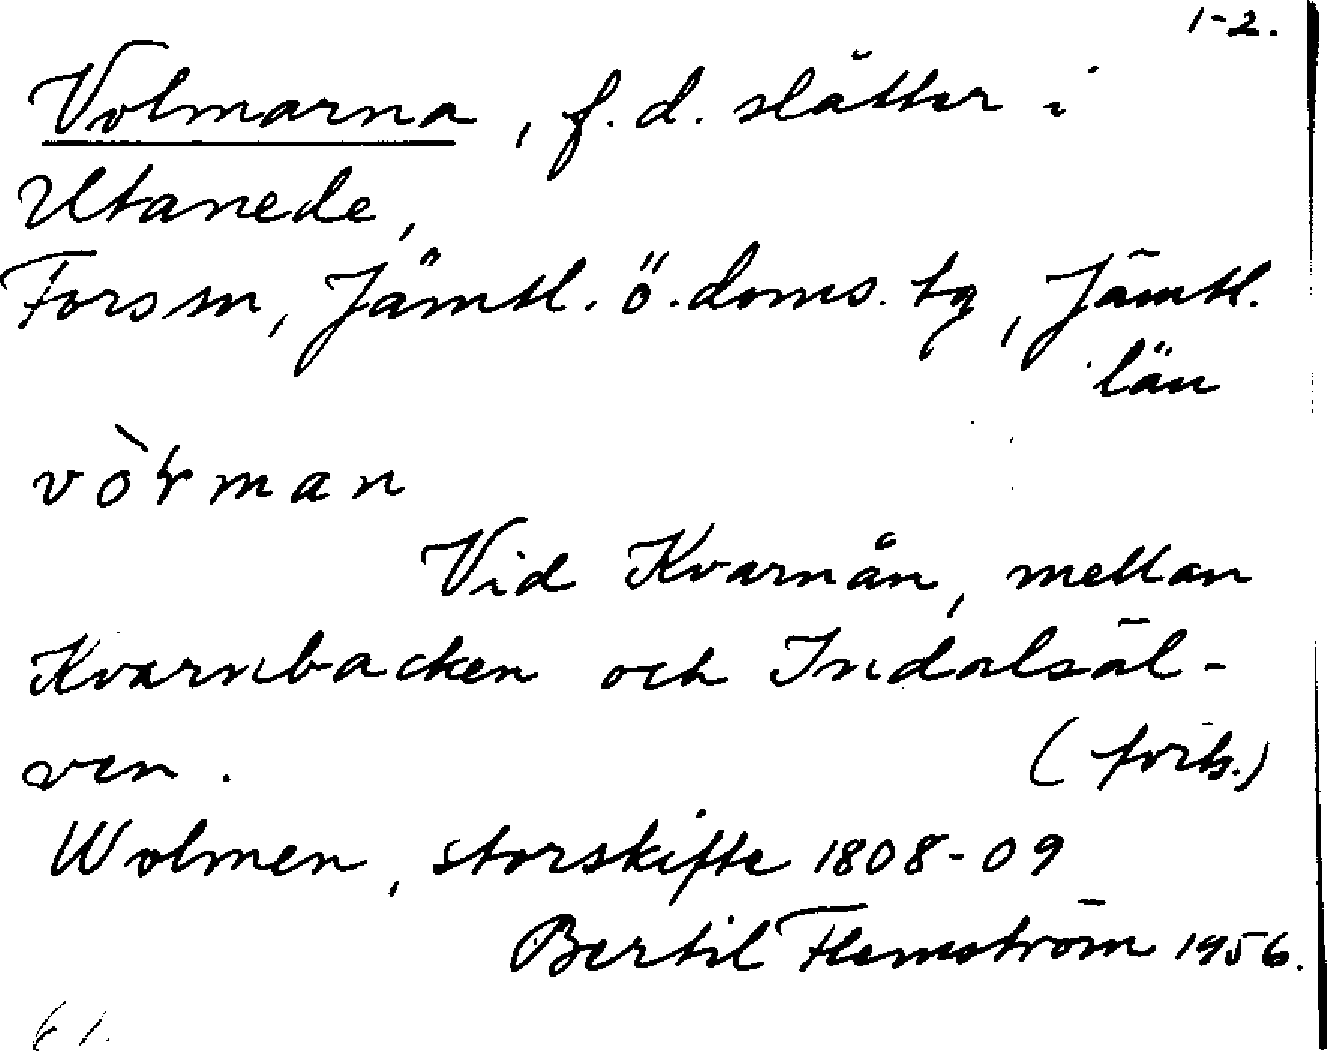 1-2.
Volmarna, f.d. slåtter i
Utanede,
Forssn, Jämtl. ö. doms. tg, Jämtl.
län
Vid Kvarnån, mellan
Kvarnbacken och Indalsäl-
ven. (forts.)
Wolmen, storskifte 1808-09
Bertil Flemström 1956.